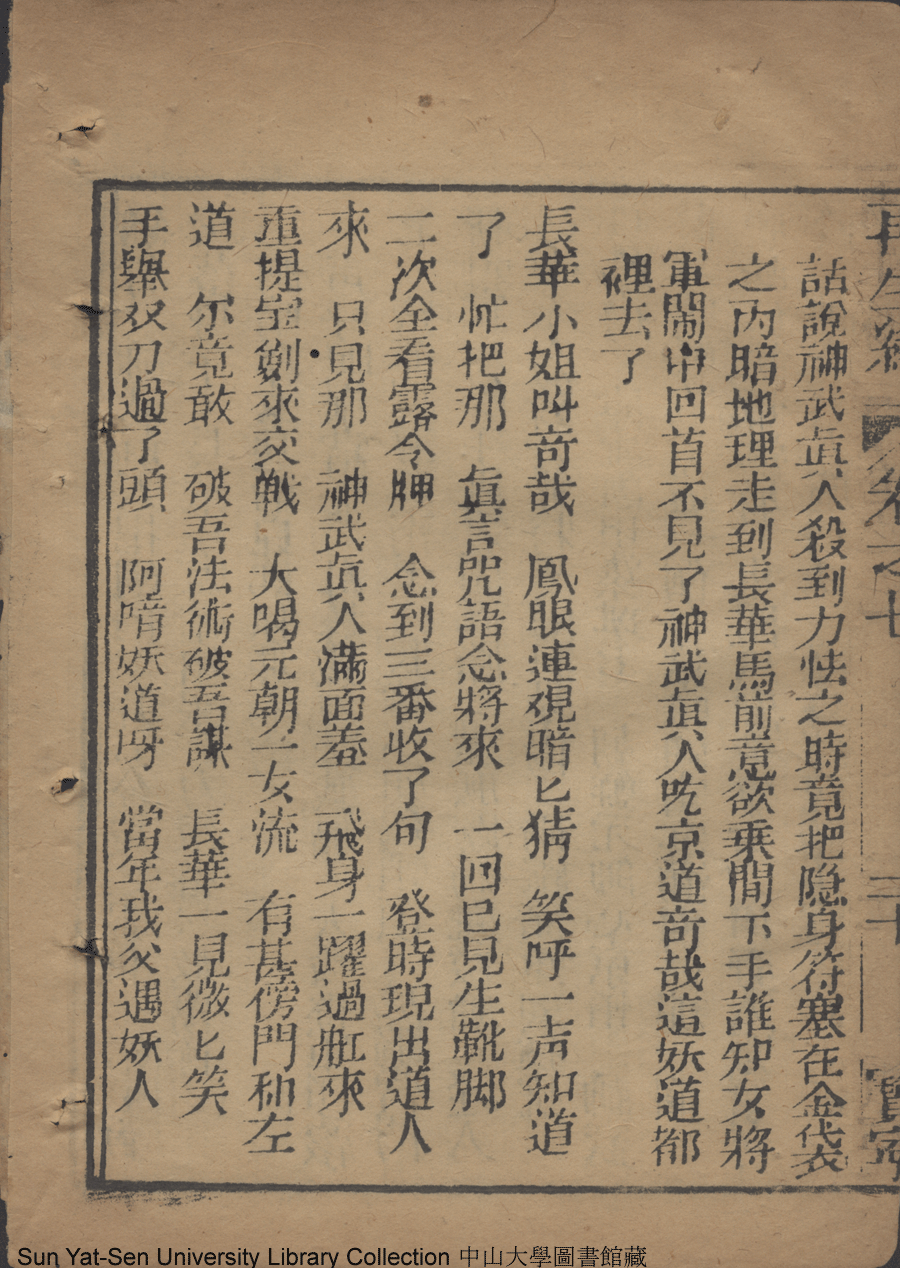 再生緣 卷之七 三十 寶寧
話說神武眞人殺到力怯之時竟把隐身符塞在金袋
之内暗地理走到長華馬前意欲乗間下手誰知女將
軍鬧中回首不見了神武眞人吃京道竒哉這妖道都
裡去了
長華小姐叫竒哉 鳳眼連覌暗匕猜 笑呼一声知道
了 忙把那 眞言咒語念將來 一回已見生靴脚
二次全看露令牌 念到三番收了句 登時現出道人
來 只見那 神武眞人滿面羞 飛身一躍過舡來
重提宝劍來交戰 大喝元朝一女流 有甚傍門和左
道 尔竟敢 破吾法術破吾謀 長華一見微匕笑
手舉双刀過了頭 阿唷妖道呀 當年我父遇妖人
Sun Yat-Sen University Library Collection 中山大學圖書館藏